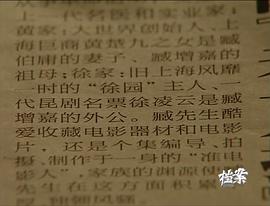 上一代名医和实业家；
黄家：大世界创始人、上
海巨商黄楚九之女是臧
伯庸的妻子、臧增嘉的
祖母；徐家：旧上海风靡
一时的“徐园”主人、
代昆剧名票徐凌云是臧
增嘉的外公。臧先生酷
爱收藏电影器材和电影
片，还是个集编导、拍
摄、制作于一身的“准电
影人”，家族的渊源使
先生在这方面积累
档案